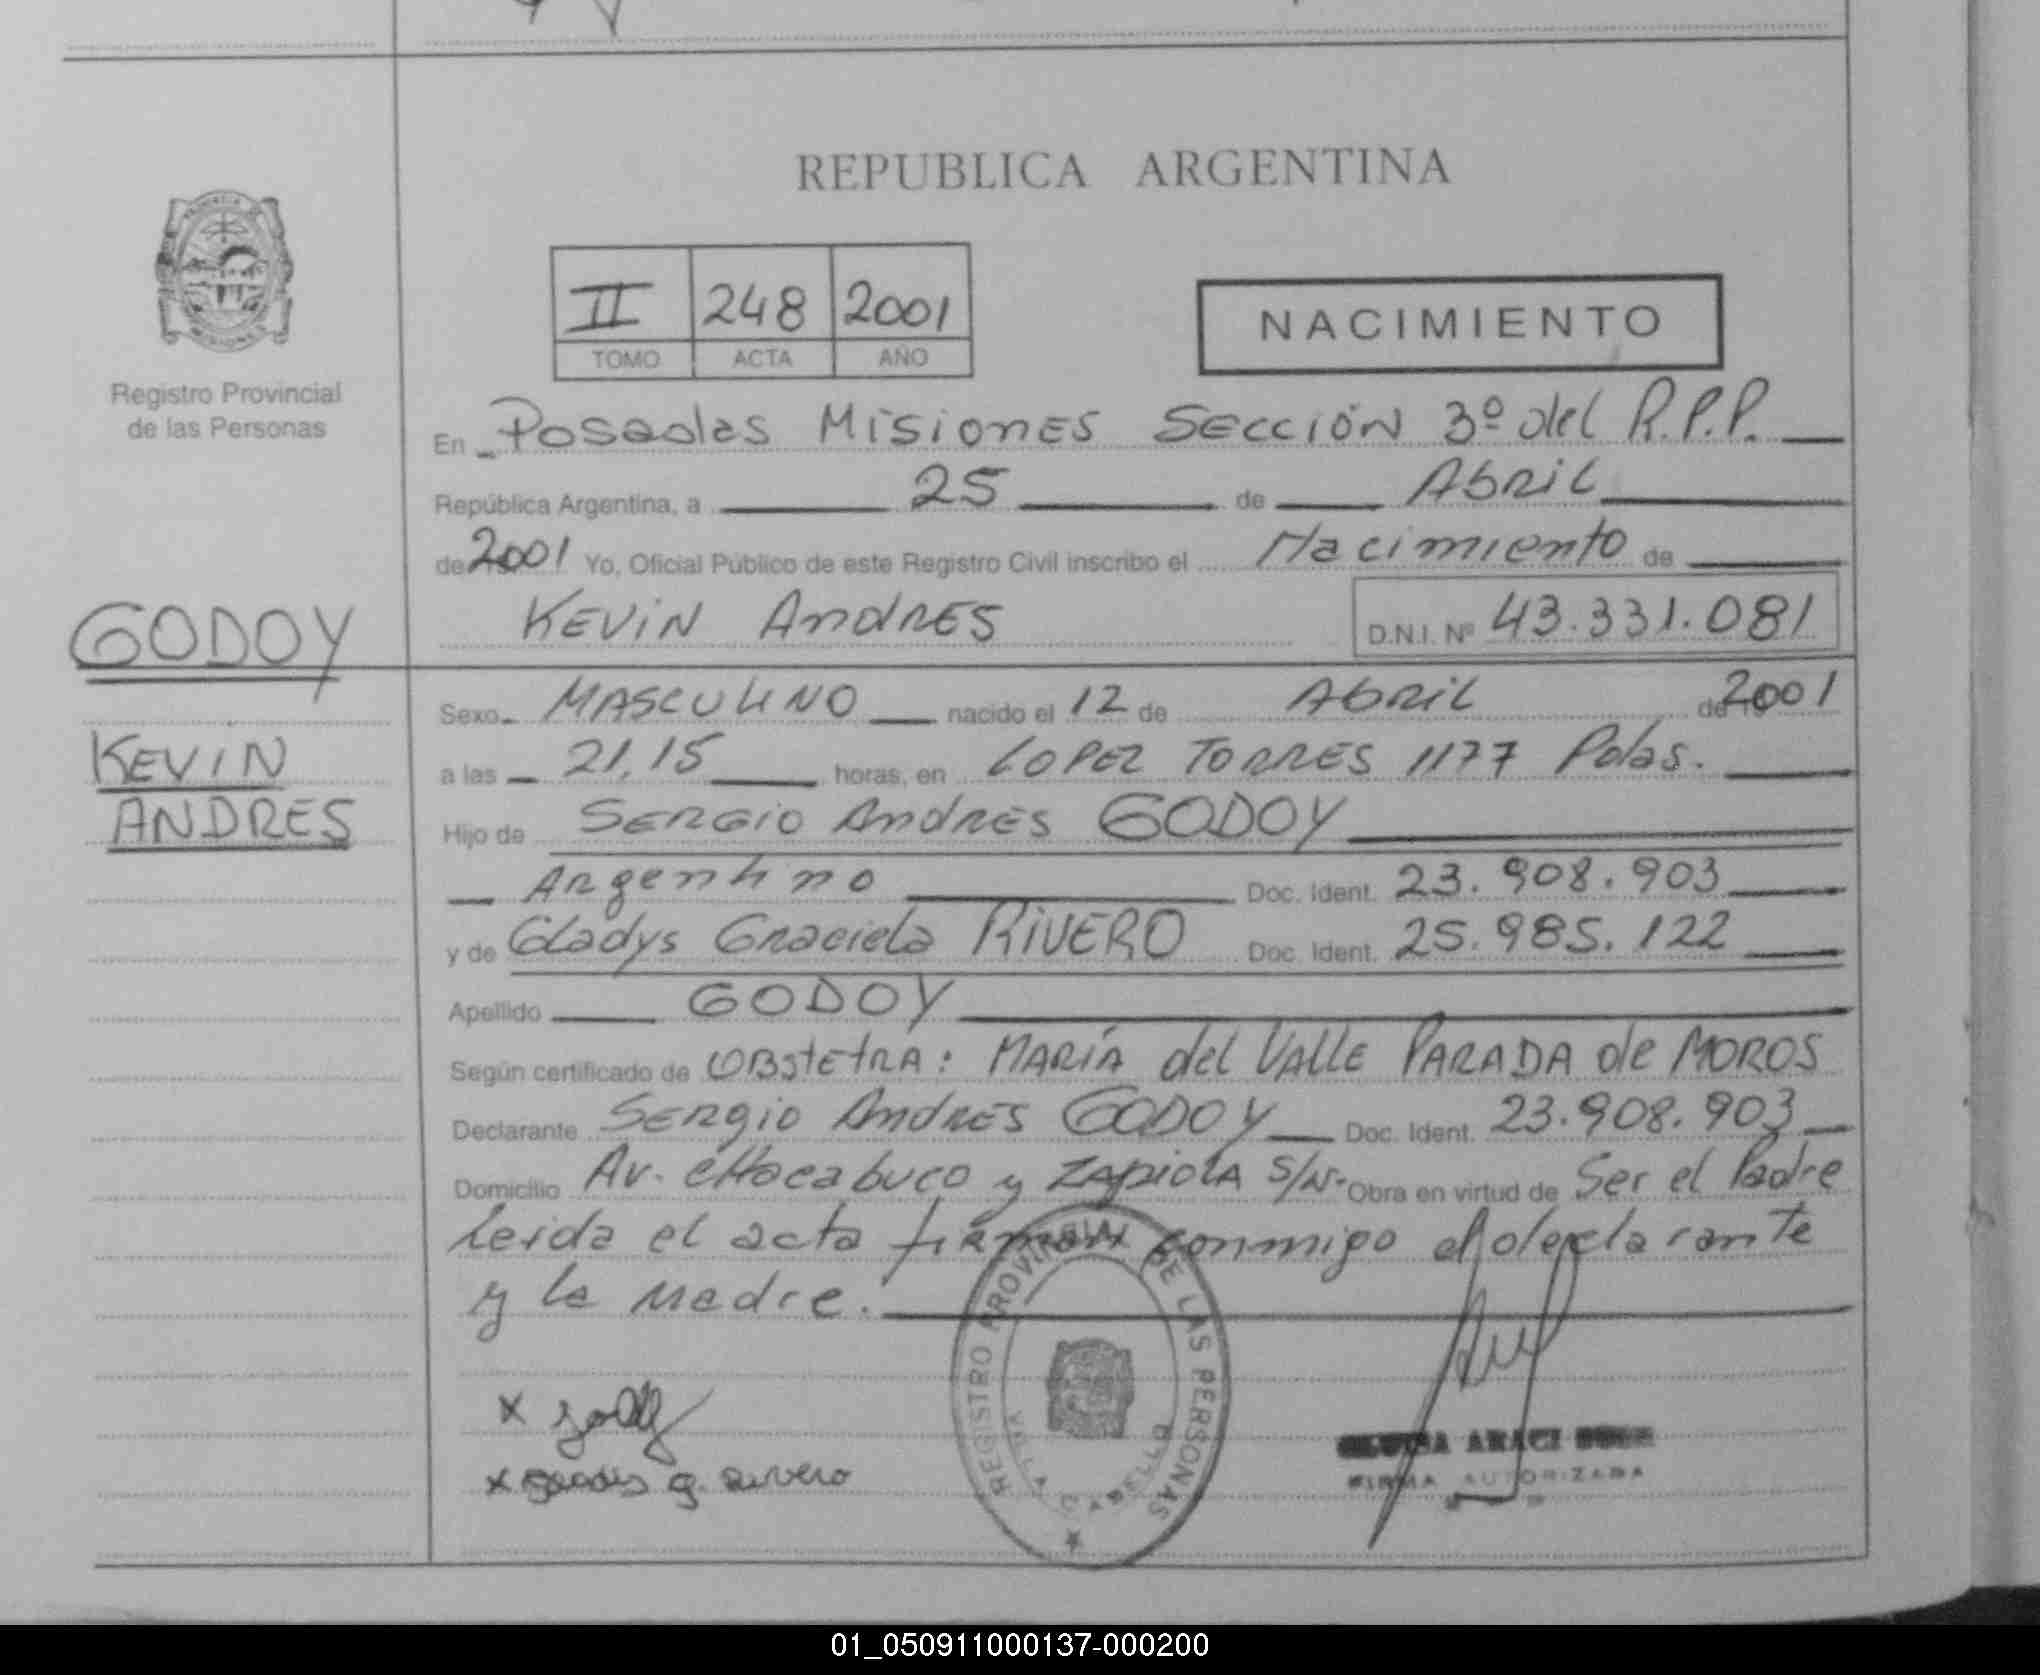 REPUBLICA ARGENTINA
II 248 2001
TOMO ACTA AÑO
NACIMIENTO
Registro Provincial
de las Personas
En Posadas Misiones Sección 3º del R.P.P.
República Argentina, a 25 de Abril
de 2001 Yo, Oficial Público de este Registro Civil inscribo el Nacimiento de
KEVIN ANDRES D.N.I. Nº 43.331.081
GODOY
KEVIN
ANDRES
Sexo MASCULINO nacido el 12 de Abril de 2001
a las 21,15 horas, en LOPEZ TORRES 1177 Pdas.
Hijo de SERGIO ANDRES GODOY
Argentino Doc. Ident. 23.908.903
y de Gladys Graciela RIVERO Doc. Ident. 25.985.122
Apellido GODOY
Según certificado de OBSTETRA: MARÍA del VALLE PARADA de MOROS
Declarante SERGIO ANDRES GODOY Doc. Ident. 23.908.903
Domicilio Av. Chacabuco y ZAPIOLA S/N. Obra en virtud de Ser el Padre
Leida el acta firman conmigo el declarante
y la Madre.
REGISTRO PROVINCIAL DE LAS PERSONAS
x
x g. rivero
ARACI
FIRMA AUTORIZADA
01_050911000137-000200